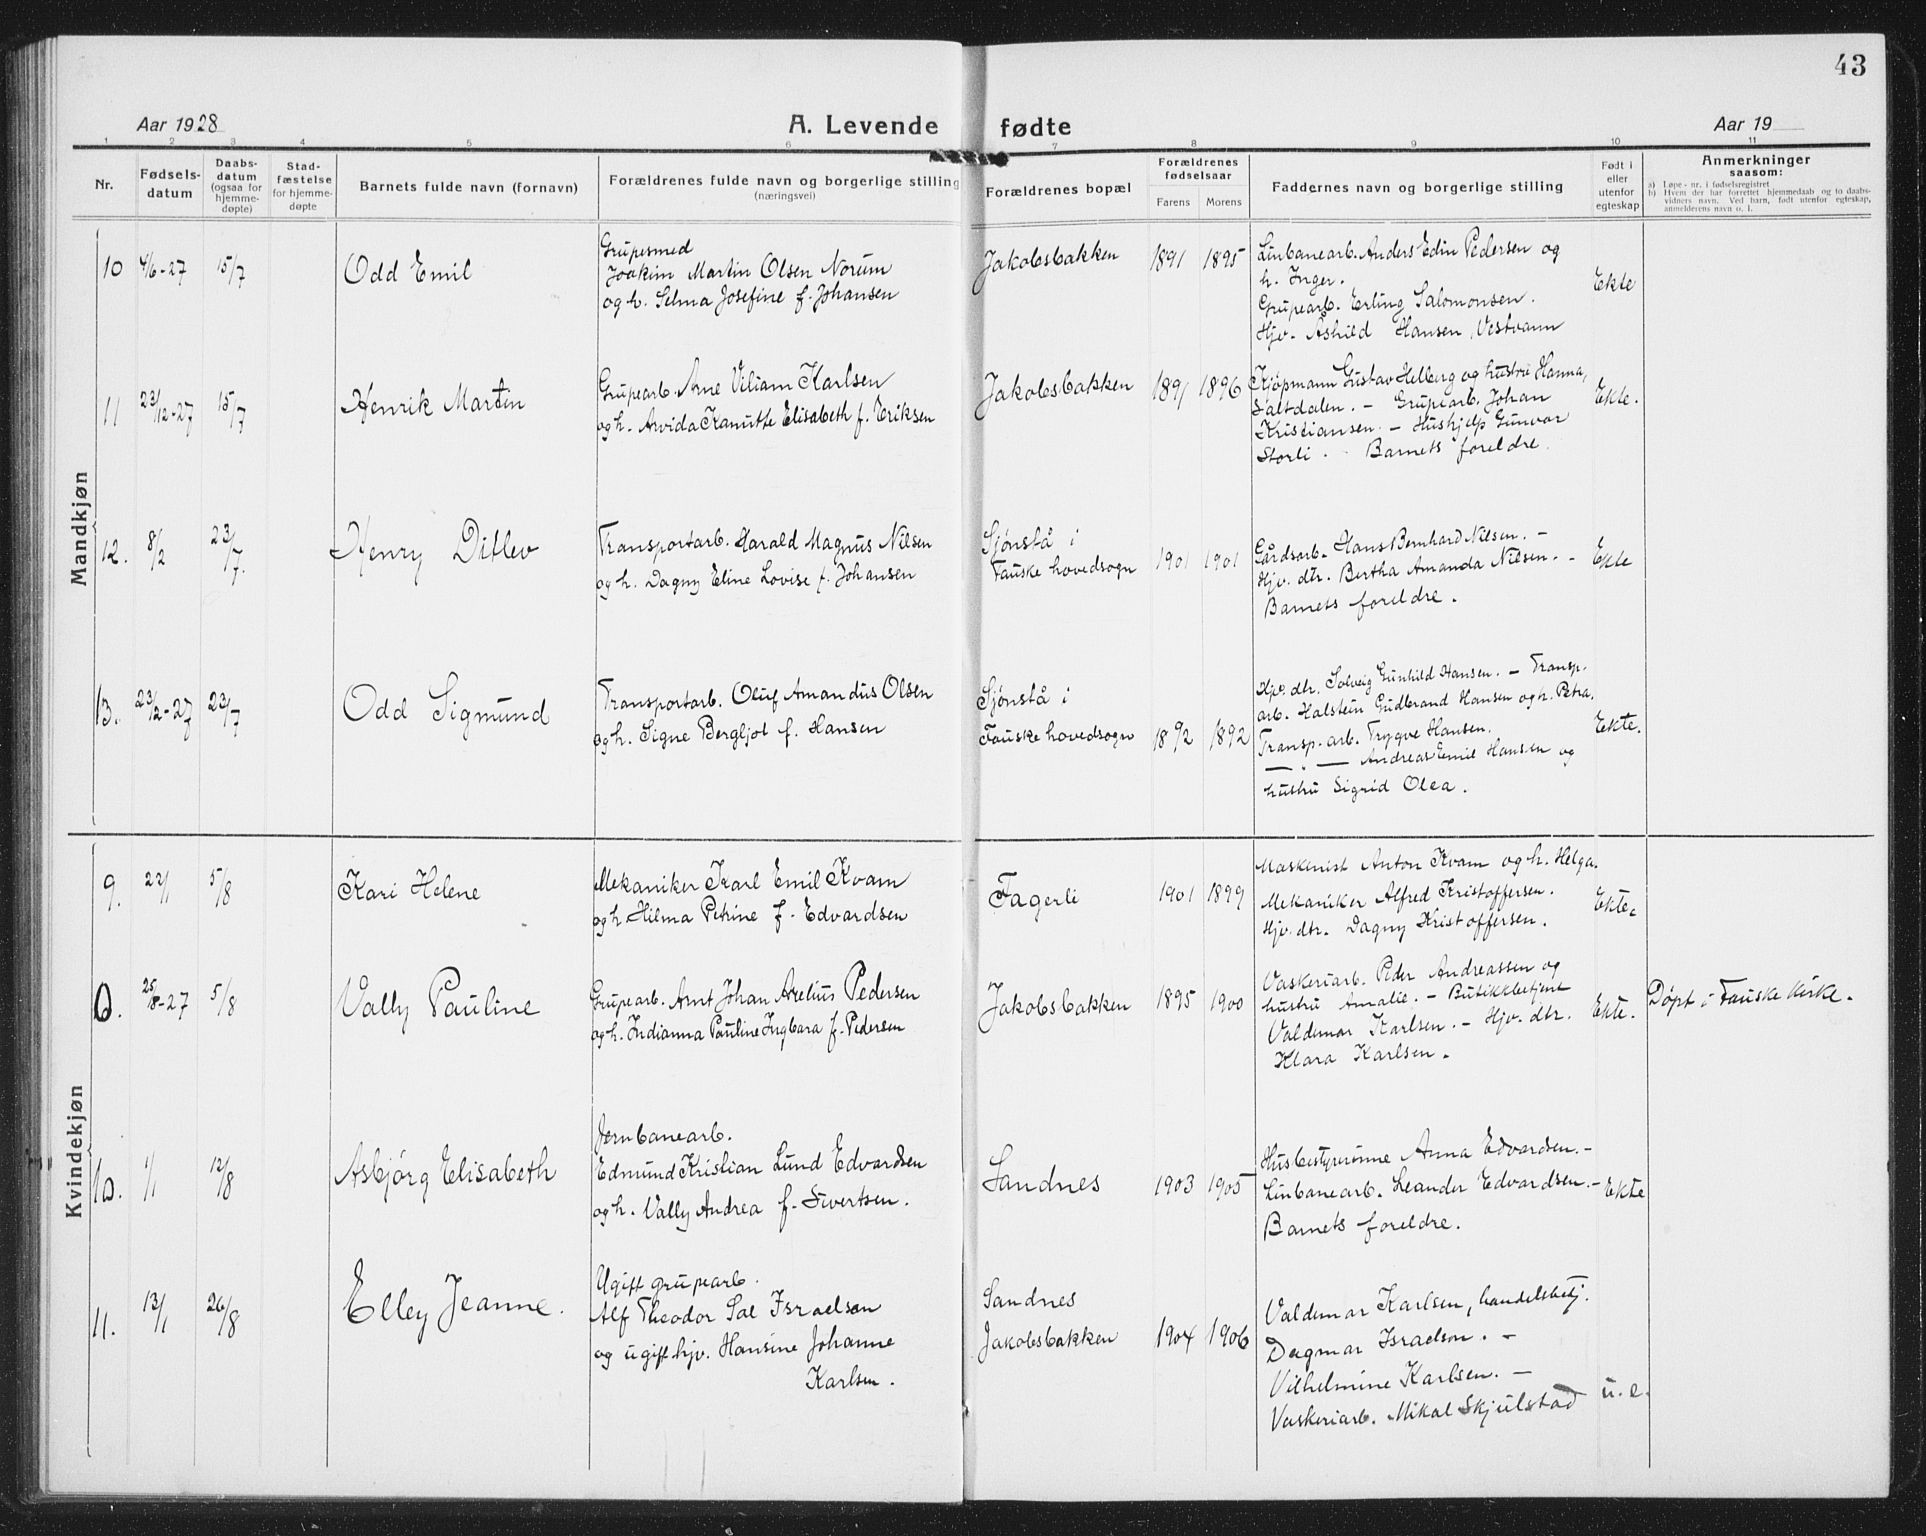 43
Aar 1928
A. Levende fødte
Aar 19
1 2 3 4 5 6 7 8 9 10 11
Nr.
Fødsels-
datum
Daabs-
datum
(ogsaa for
hjemme-
døpte)
Stad-
fæstelse
for hjemme-
døpte
Barnets fulde navn (fornavn)
Forældrenes fulde navn og borgerlige stilling
(næringsvei)
Forældrenes bopæl
Forældrenes
fødselsaar
Farens Morens
Faddernes navn og borgerlige stilling
Født i
eller
utenfor
egteskap
Anmerkninger
saasom:
a) Løpe-nr. i fødselsregistret
b) Hvem der har forrettet hjemmedaab og to daabs-
vidners navn. Ved barn, født utenfor egteskap,
anmelderens navn o. l.
Mandkjøn
10 4/6-27 15/7
Odd Emil
Grupesmed
Joakim Martin Olsen Norum
og h. Selma Josefine f. Johansen
Jakobsbakken
1891 1895
Linbanearb. Anders Edin Pedersen og
h. Inger.
Grupearb. Erling Salomonsen.
Hjv. Åshild Hansen, Vestvann
Ekte
11 23/12-27 15/7
Henrik Martin
Grupearb. Arne Viliam Karlsen
og h. Arvida Kanutte Elisabeth f. Eriksen
Jakobsbakken
1891 1896
Kjøpmann Gustav Helberg og hustru Hanna,
Saltdalen. - Grupearb. Johan
Kristiansen. - Hushjelp Gunvor
Storli. - Barnets foreldre.
Ekte.
12. 8/2 23/7.
Henry Ditlev
Transportarb. Harald Magnus Nilsen
og h. Dagny Eline Lovise f. Johansen
Sjønstå i
Fauske hovedsogn
1901 1901
Gårdsarb. Hans Bernhard Nilsen. -
Hjv. dtr. Bertha Amanda Nilsen. -
Barnets foreldre.
Ekte
13. 23/2-27 23/7
Odd Sigmund
Transportarb. Oluf Amandus Olsen
og h. Signe Bergljot f. Hansen
Sjønstå i
Fauske hovedsogn
1892 1892
Hjv. dtr. Solveig Gunhild Hansen. - Transp.
arb. Halstein Gudbrand Hansen og h. Petra.
Transp. arb. Trygve Hansen.
— " — Andreas Emil Hansen og
hustru Sigrid Olea.
Ekte.
Kvindekjøn
9. 22/1 5/8
Kari Helene
Mekaniker Karl Emil Kvam
og h. Hilma Petrine f. Edvardsen
Fagerli
1901 1899
Maskinist Anton Kvam og h. Helga.
Mekaniker Alfred Kristoffersen.
Hjv. dtr. Dagny Kristoffersen.
Ekte.
0. 25/8-27 5/8
Vally Pauline
Grupearb. Arnt Johan Arelius Pedersen
og h. Indianna Pauline Ingbara f. Pedersen
Jakobsbakken
1895 1900
Vaskeriarb. Peder Andreassen og
hustru Amalie. - Butikkbetjent
Valdemar Karlsen. - Hjv. dtr.
Klara Karlsen.
Ekte.
Døpt i Fauske kirke.
10. 1/1 12/8
Asbjørg Elisabeth
Jernbanearb.
Edmund Kristian Lund Edvardsen
og h. Vally Andrea f. Sivertsen.
Sandnes
1903 1905
Husbestyrerinne Anna Edvardsen. -
Linbanearb. Leander Edvardsen. -
Barnets foreldre.
Ekte
11. 13/1 26/8
Elley Jeanne.
Ugift grupearb.
Alf Theodor Sal Israelsen
og ugift hjv. Hansine Johanne
Karlsen.
Sandnes
Jakobsbakken
1904 1906
Valdemar Karlsen, handelsbetj.
Dagmar Israelson. -
Vilhelmine Karlsen. -
Vaskeriarb. Mikal Skjulstad
u. e.